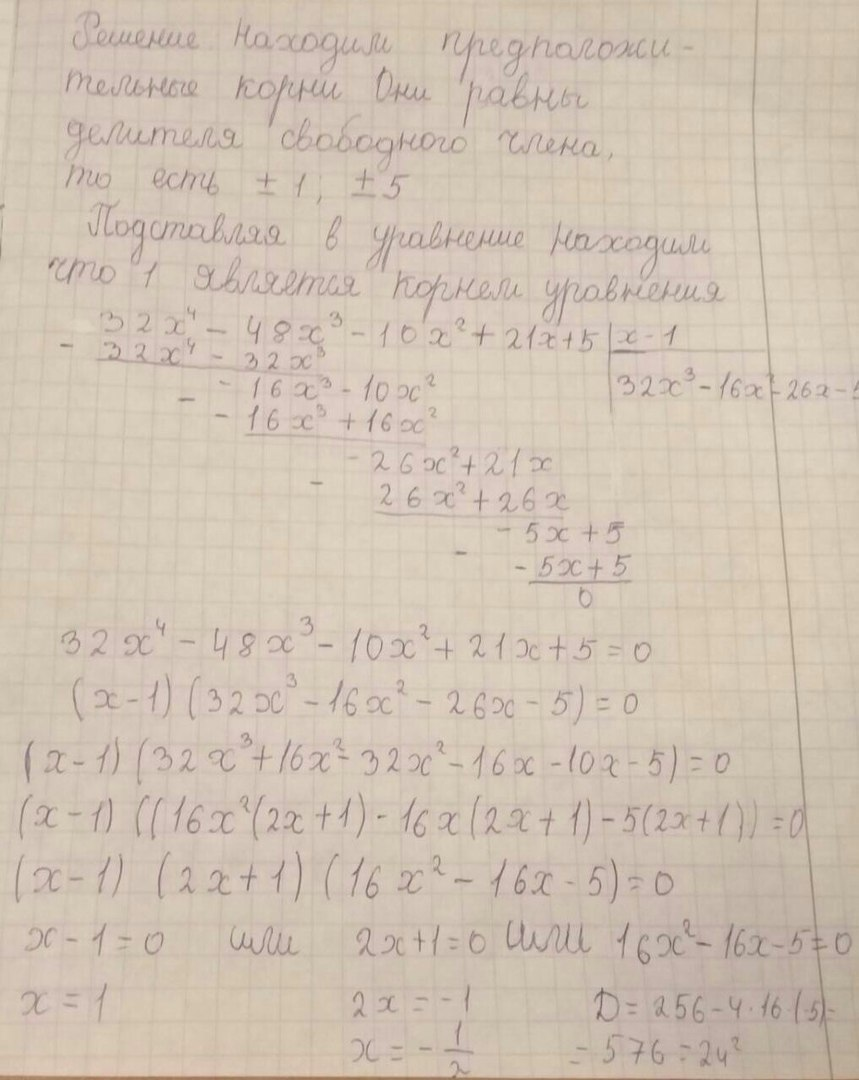 Решение Находим предположи-
тельные корни Они равны
делителя свободного члена,
то есть ± 1; ± 5
Подставляя в уравнение находим
что 1 является корнем уравнения
32x⁴ - 48x³ - 10x² + 21x + 5 | x - 1
- 32x⁴ - 32x³
32x³ - 16x² - 26x - 5
- 16x³ - 10x²
- - 16x³ + 16x²
- 26x² + 21x
- 26x² + 26x
- 5x + 5
- - 5x + 5
0
32x⁴ - 48x³ - 10x² + 21x + 5 = 0
(x - 1) (32x³ - 16x² - 26x - 5) = 0
(x - 1) (32x³ + 16x² - 32x² - 16x - 10x - 5) = 0
(x - 1) ((16x²(2x + 1) - 16x(2x + 1) - 5(2x + 1)) = 0
(x - 1) (2x + 1) (16x² - 16x - 5) = 0
x - 1 = 0 или 2x + 1 = 0 или 16x² - 16x - 5 = 0
x = 1 2x = -1 D = 256 - 4 · 16 · (-5) =
x = - 1/2 = 576 = 24²